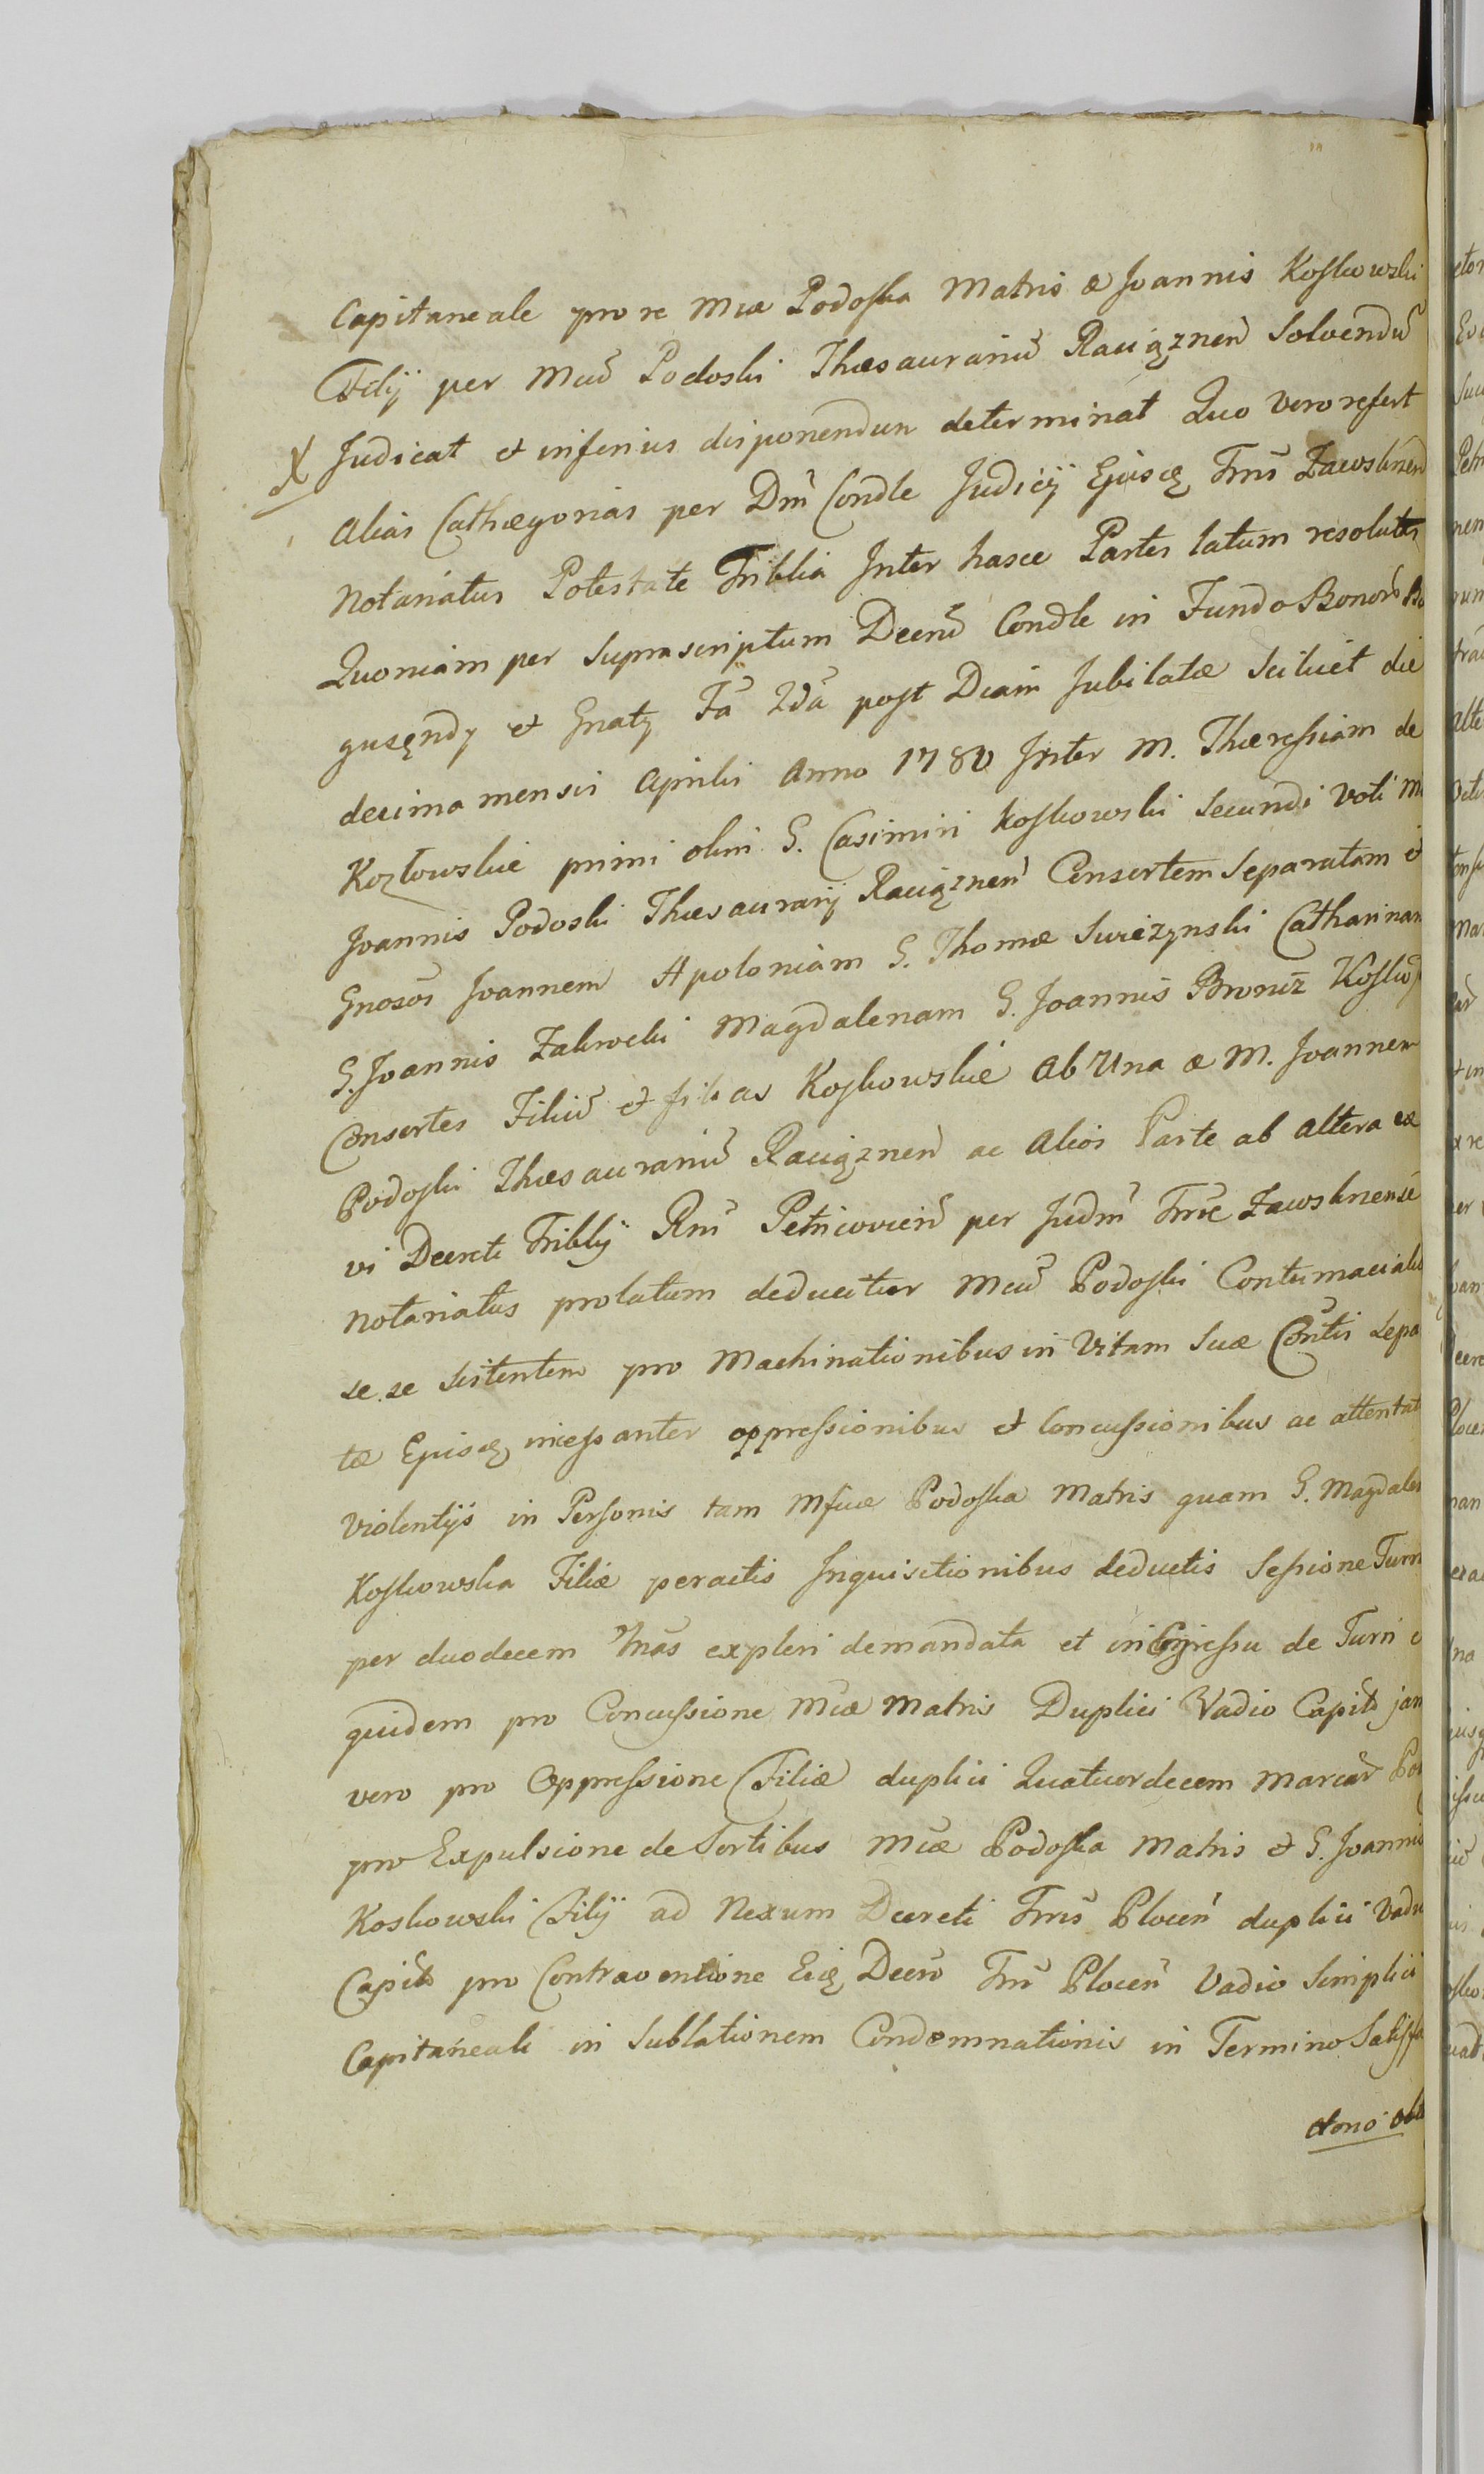 Capitaneale pro re Mcæ Podoska Matris æ Joannis Koskowski
Filij per Mcū Podoski Thesaurariū Raciąznen̄ Solvendū
X Judicat et inferius disponendum determinat Quo vero refert
Alias Cathegorias per Dm̄ Condle Judicij Ejusq Trrīs Zawskrnen̄
Notariatus Potestate Triblia Inter hasce Partes latum resolutas
Quoniam per Suprascriptum Decrū Condle in Fundo Bonorū
et Gnaty Fa 2da post Dcam Jubilatæ Scilicet die
decima mensis Aprilis Anno 1780 Inter M. Theressiam de
Kozłowskie primi olim G. Casimiri Koskowski Secundi Voti M
Joannis Podoski Thesaurarij Raciąznen̄ Consortem Separatam et
Gnosos Joannem Apoloniam G. Thomæ Swiezynski Catharinam
G. Joannis Zakrocki Magdalenam G. Joannis Broniz
Consortes Filiū et filias Koskowskie Ab Una æ M. Joannem
Podoski Thesaurariū Raciąznen̄ ac Alios Parte ab altera ex
vi Decreti Triblij Rnī Petricovien̄ per Judm̄ Trrīæ Zawskrnense
Notariatus prolatum deducitur Mcū Podoski Contumacialr
se se sistentem pro Machinationibus in Vitam Suæ Contis Sepa
tæ Ejusq incessanter oppressionibus et Concussionibus ac attentat
Violentijs in Personis tam Mficæ Podoska Matris quam G. Magdalen
Koskowska Filiæ peractis Inquisitionibus deductis Sessione Turri
per duodecem expleri demandata et in Egressu de Turri
quidem pro Concussione Mcæ Matris Duplici Vadio Capito jam
vero pro Oppressione Filiæ duplici Quatuordecem Marcar
pro Expulsione de Sortibus Mcæ Podoska Matris et G. Joannis
Koskowski Filij ad Nexum Decreti Trrīs Plocen̄ duplici Vadio
Capito pro Contraventione Eiq Decro Trrī Plocen̄ Vadio Simplici
Capitaneali in Sublationem Condemnationis in Termino Satisfa
ctorio